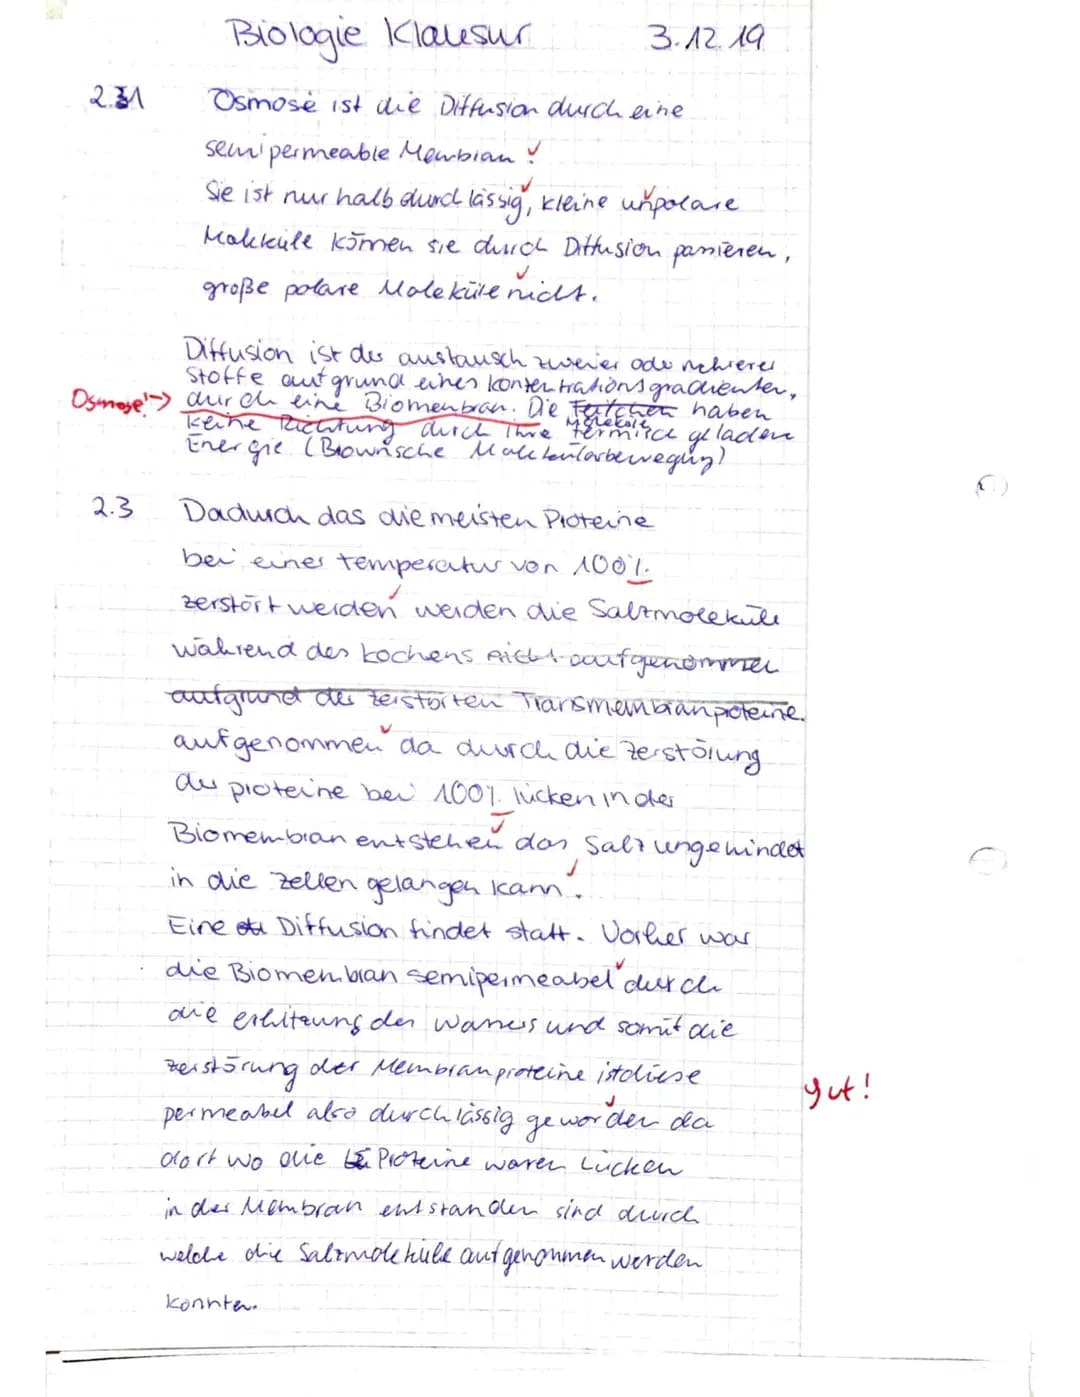 Biologie Klausur 3.12.19
2.31 Osmose ist die Diffusion durch eine
semipermeable Membran.
Sie ist nur halb durchlässig, kleine unpolare
Moleküle können sie durch Diffusion passieren,
große polare Moleküle nicht.
Diffusion ist der austausch zweier oder mehrerer
Stoffe aufgrund eines konzentrationsgradienten,
Osmose!→ durch eine Biomembran. Die Teilchen haben
Moleküle
keine Richtung durch ihre termisch geladene
Energie (Brownsche Molekularbewegung)
2.3 Dadurch das die meisten Proteine
bei einer temperatur von 100%
zerstört werden werden die Salzmoleküle
während des kochens nicht aufgenommen
aufgrund der zerstörten Transmembranproteine.
aufgenommen da durch die Zerstörung
der proteine bei 100% lücken in der
Biomembran entstehen das Salz ungehindet
in die Zellen gelangen kann.
Eine Diffusion findet statt. Vorher war
die Biomembran semipermeabel durch
die erhitzung des wassers und somit die
zerstörung der Membranproteine ist diese
gut!
permeabel also durchlässig geworden da
dort wo die Proteine waren Lücken
in der Membran entstanden sind durch
welche die Salzmoleküle aufgenommen werden
konnten.